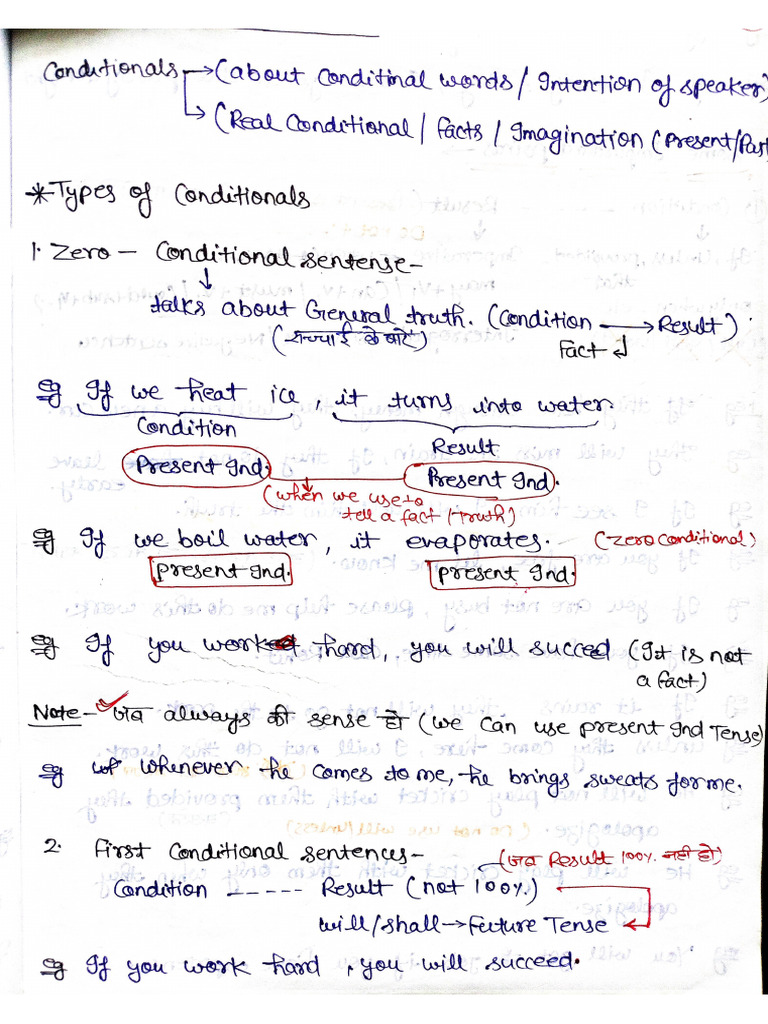 Conditionals → (about conditinal words / Intention of speaker)
↳ (Real Conditional / facts / Imagination (Present/Past
* Types of Conditionals
1. Zero – Conditional sentense –
↓
talks about General truth. (Condition → Result)
(सच्चाई के बारे) Fact
Eg If we heat ice, it turns into water.
Condition Result
Present Ind. Present Ind.
(when we use to
tell a fact / truth)
Eg If we boil water, it evaporates. (Zero conditional)
Present Ind. Present Ind.
Eg If you work hard, you will succed (It is not
a fact)
Note – जब always की sense हो (we can use present Ind Tense)
Eg whenever he comes to me, he brings sweats for me.
2. First Conditional sentences – (जब Result 100% नहीं हो)
Condition ----- Result (not 100%)
will/shall → Future Tense
Eg If you work hard, you will succeed.